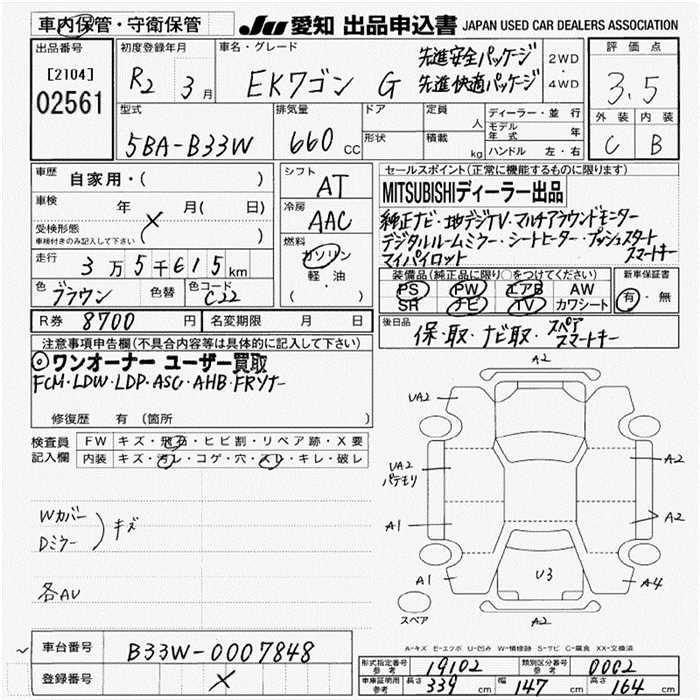 車内保管・守衛保管
JU 愛知 出品申込書 JAPAN USED CAR DEALERS ASSOCIATION
出品番号
[2104]
02561
初度登録年月
R2 3月
車名・グレード
EKワゴン G
先進安全パッケージ
先進快適パッケージ
2WD
・
4WD
評価点
3.5
外装 内装
C B
型式
5BA-B33W
排気量
660 CC
ドア
形状
定員 人
積載 kg
ディーラー・並行
モデル年式 年
ハンドル 左・右
車歴 自家用・( )
車検 年 月( 日)
受検形態
車検付きのみ記入して下さい ( )
×
走行 3万5千615km
色 ブラウン 色替 色コード C22
シフト
AT
冷房
AAC
燃料
ガソリン
軽・油
( )
R券 8700円 名変期限 月 日
セールスポイント(正常に機能するものに限ります)
MITSUBISHIディーラー出品
純正ナビ・地デジTV・マルチアラウンドモニター
デジタルルームミラー・シートヒーター・プッシュスタート
マイパイロット スマートキー
装備品(純正品に限り○をつけてください)
PS PW エアB AW
SR ナビ TV カワシート
新車保証書
有・無
後日品
保・取・ナビ取・スペア
スマートキー
注意事項申告欄(不具合内容等は具体的に記入して下さい)
◎ワンオーナー ユーザー買取
FCM・LDW・LDP・ASC・AHB・FRソナー
修復歴 有 (箇所 )
検査員
記入欄
FW キズ・飛石・ヒビ割・リペア跡・X要
内装 キズ・汚レ・コゲ・穴・スレ・キレ・破レ
Wカバー
Dミラー
) キズ
各AU
A2
UA2
UA2
パテモリ
A1
A1
A2
A2
A4
U3
A2
スペア
A-キズ E-エクボ U-凹み W-補修跡 S-サビ C-腐食 XX-交換済
車台番号 B33W-0007848
登録番号 ×
型式指定番号 参考 19102 類別区分番号 参考 0002
車庫証明用 参考 長さ 339 cm 幅 147 cm 高さ 164 cm